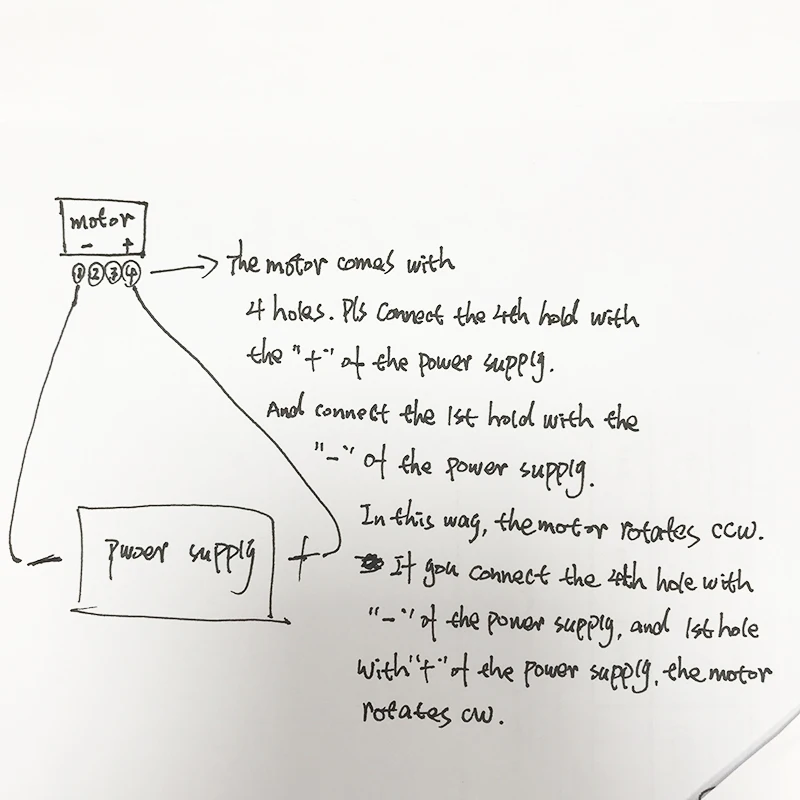 motor
- +
① ② ③ ④
The motor comes with
4 holes. Pls connect the 4th hold with
the "+" of the power supply.
And connect the 1st hold with the
"-" of the power supply.
In this way, the motor rotates ccw.
If you connect the 4th hole with
"-" of the power supply, and 1st hole
with "+" of the power supply, the motor
rotates cw.
- pwoer supply +